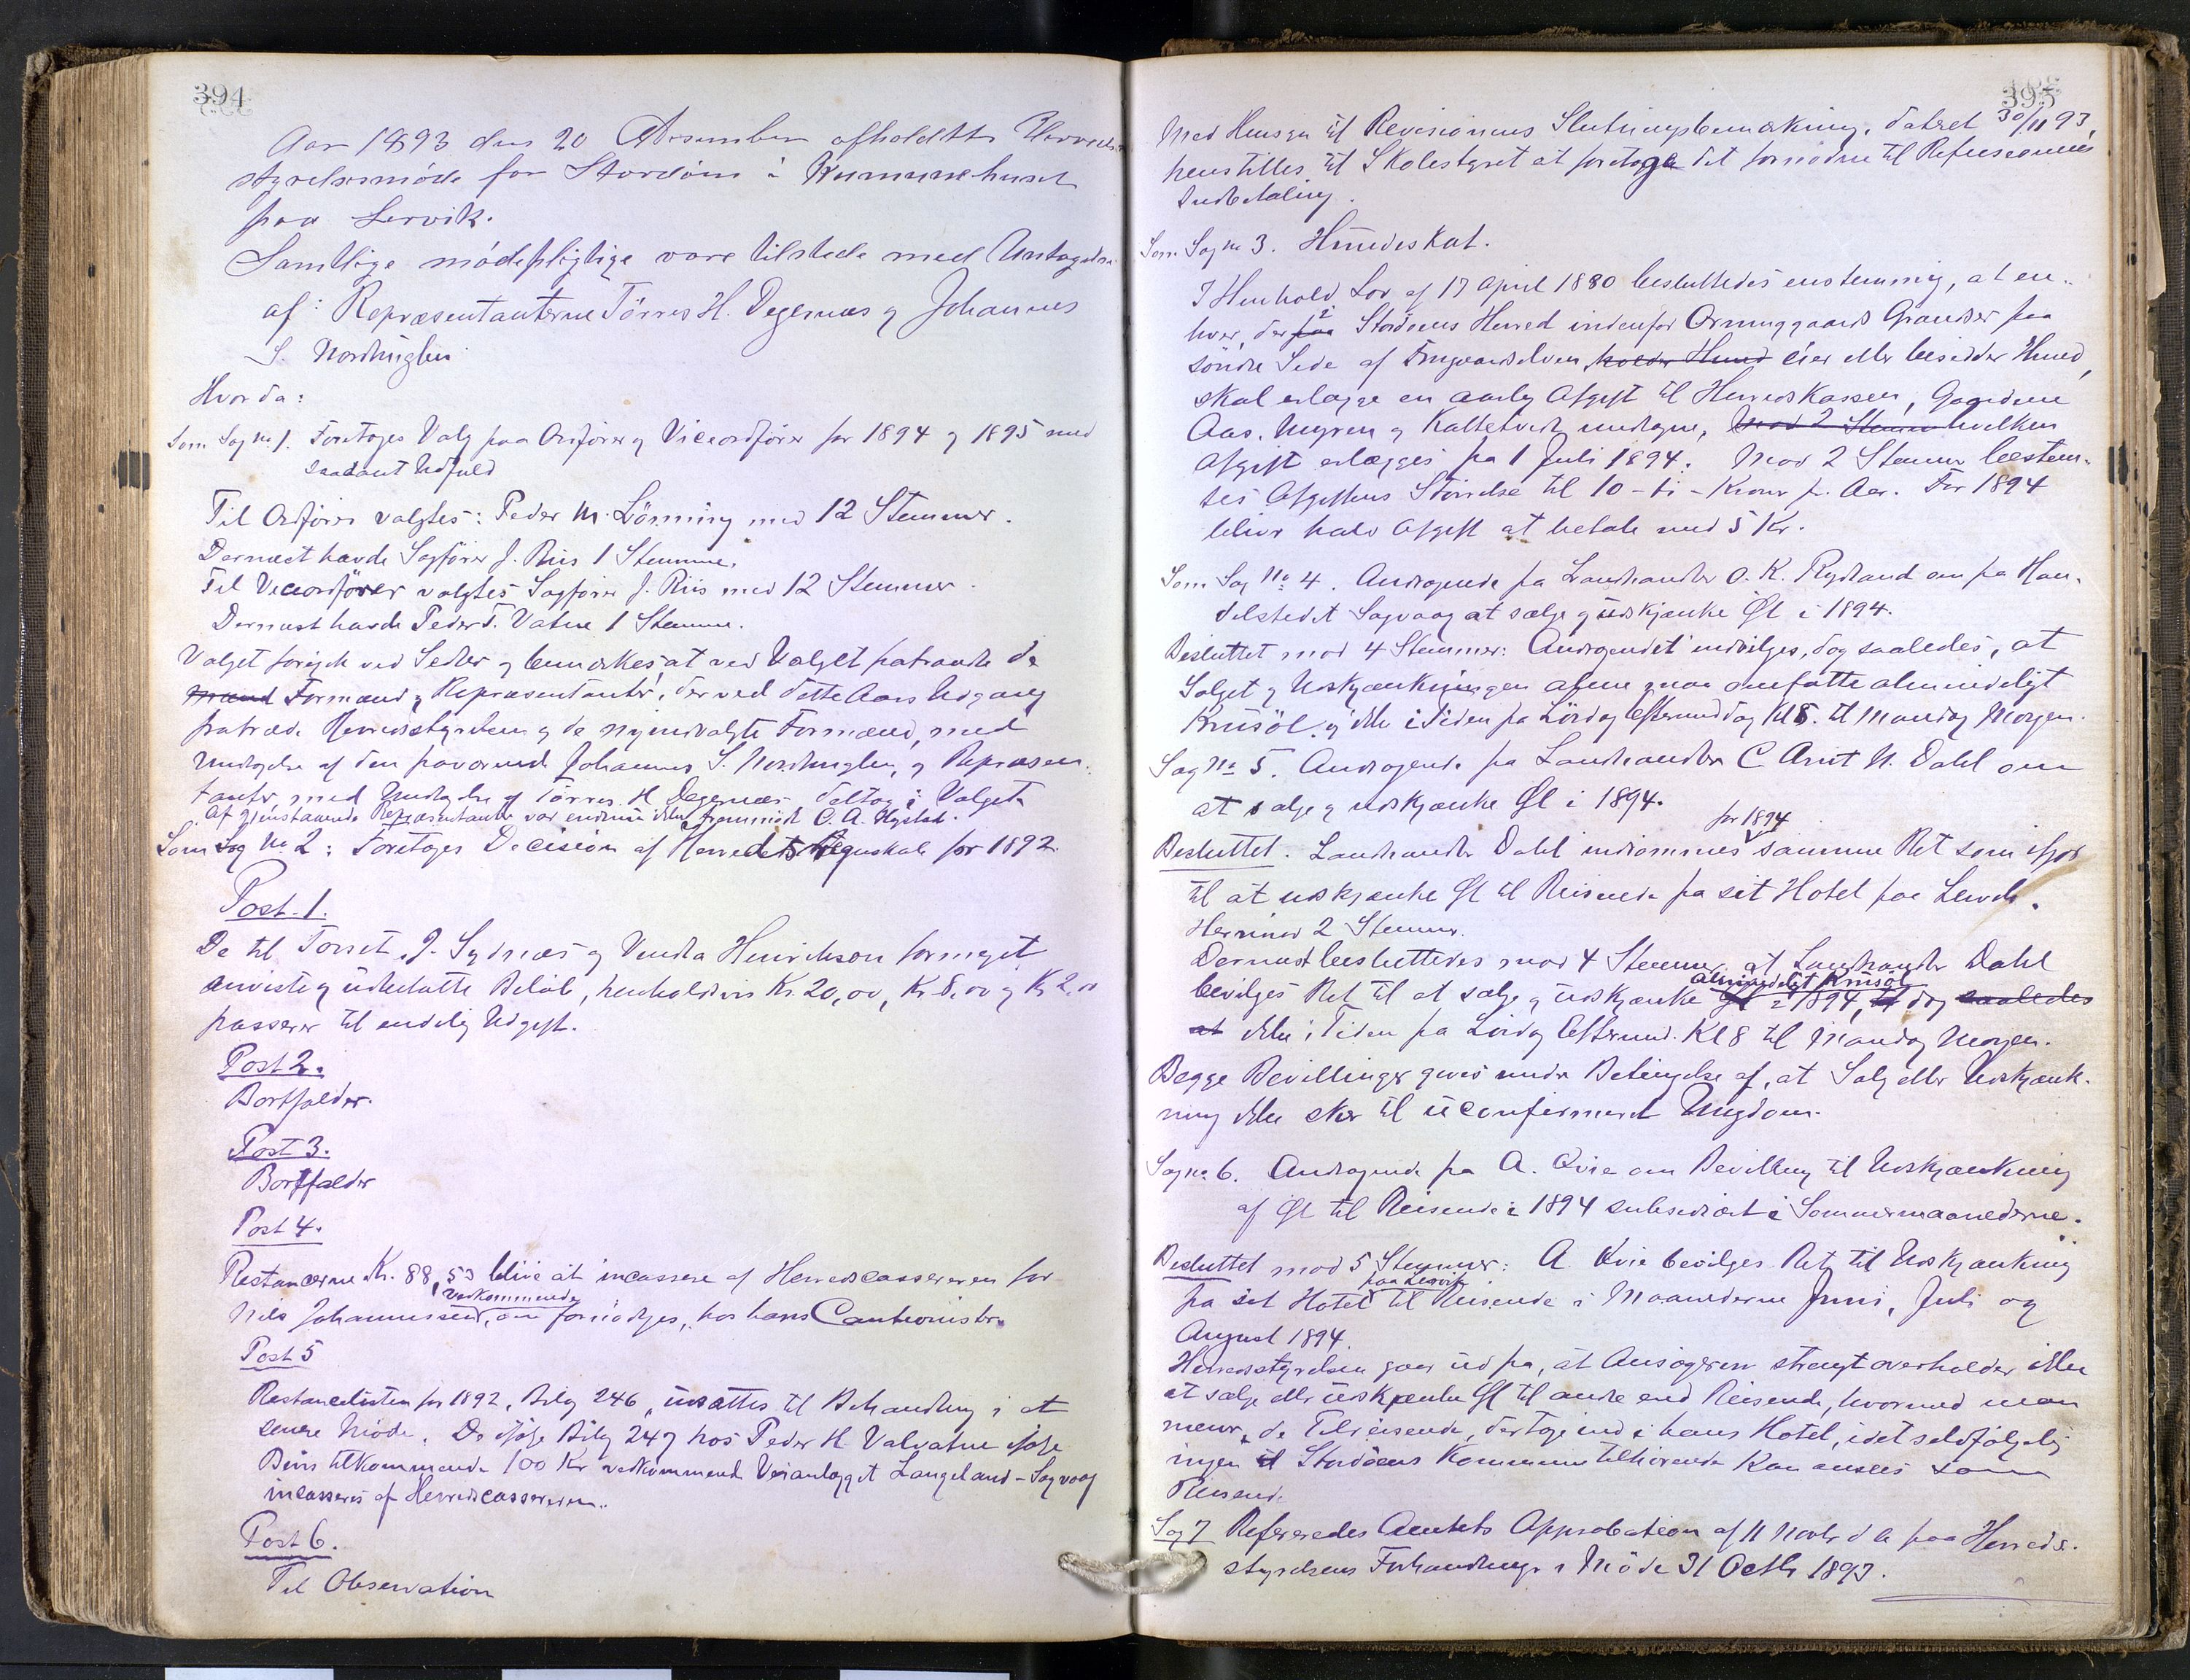 394
Aar 1893 den 20 Desember afholdtes Herreds
styrelsesmöde for Stordöen i Kommunehuset
paa Lervik.
Samtlige mödepligtige vare tilstede med Untagelse
af: Repræsentanterne Törres H. Degernæs & Johannes
S. Nordhuglen
Hvorda:
Som Sag No 1. Foretoges Valg paa Ordförer & Viceordförer for 1894 & 1895 med
saadant Udfald
Til Ordförer valgtes: Peder M. Lönning med 12 Stemmer.
Dernæst havde Sagförer J. Riis 1 Stemme.
Til Viceordförer valgtes Sagförer J. Riis med 12 Stemmer.
Dernæst havde Peder T. Vatne 1 Stemme.
Valget foregik ved Sedler & bemærkes, at ved Valget fratraadte de
Mænd Formænd & Repræsentanter, der ved dette Aars Udgang
fratræde Herredsstyrelsen & de nyindvalgte Formænd, med
Undtagelse af den fraværende Johannes S. Nordhuglen, & Repræsen-
tanter, med Undtagelse af Törres H. Degernæs deltog i Valget.
Af gjenstaaende Repræsentanter var endnu ikke fremmödt C. A. Nystad.
Som Sag No 2: Foretoges Decision af Herredets Regnskab for 1892.
Post. 1.
De til Torset, J. Sydnæs & Vendla Henrichson formeget
anviste & udbetalte Belöb, henholdsvis Kr. 20,00, Kr. 8,00 & Kr 2,00
passerer til endelig Udgift.
Post 2.
Bortfalder.
Post 3.
Bortfalder
Post 4.
Restancerne Kr. 88,53 blive at incassere af Herredscassereren for
vedkommende
Nels Johannessen, om fornödges, hos hans Cautionister.
Post 5
Restancelisten for 1892, Bilag 246, udsættes til Behandling i et
senere Möde. De ifölge Bilag 247 hos Peder H. Valvatne ifölge
Bevis tilkommende 100 Kr vedkommende Veianlægget Langeland - Sagvaag
incasseres af Herredscassereren.
Post 6.
Til Observation
395
Med Hensyn til Revisionens Slutningsbemærkning, dateret 30/11 93,
henstilles til Skolestyret at foretage det fornödne til Refusionernes
Indbetaling.
Som Sag No 3. Hundeskat.
I Henhold Lov af 17 April 1880 besluttedes enstemmig, at en-
hver, der paa i Stordöens Herred indenfor Ormeggaards Grændser paa
söndre Side af holder Hund eier eller besidder Hund,
skal erlægge en aarlig Afgift til Herredskassen, Gaardene
Aas, Myren & Kattetveit undtagne, mod 2 Stemmer hvilken
Afgift erlægges fra 1 Juli 1894. Mod 2 Stemmer bestem-
tes Afgiftens Störrelse til 10 - ti - Kroner pr. Aar. For 1894
bliver halv Afgift at betale med 5 Kr.
Som Sag No 4. Andragende fra Landhandler O. K. Rydland om fra Han-
delstedet Sagvaag at sælge & udskjænke Öl i 1894.
Besluttet mod 4 Stemmer: Andragendet indvilges, dog saaledes, at
Salget & Udskjænkningen alene maa omfatte almindeligt
Krusöl, & ikke i Tiden fra Lördag Eftermiddag Kl 8. til Mandag Morgen.
Sag No 5. Andragende fra Landhandler C. Arnt N. Dahl om
at sælge & udskjænke Öl i 1894.
for 1894
Besluttet. Landhandler Dahl indrömmes samme Ret som ifjor
til at udskjænke Öl til Reisende fra sit Hotel paa Lervik.
Herimod 2 Stemmer.
Dernæst besluttedes mod 4 Stemmer, at Landhandler Dahl
almindeligt Krusöl
bevilges Ret til at sælge & udskjænke Öl i 1894, dog saaledes
at ikke i Tiden fra Lördag Eftermd. Kl 8 til Mandag Morgen.
Begge Bevillinger gives under Betingelse af, at Salg eller Udskjænk-
ning ikke sker til uconfirmeret Ungdom.
Sag No 6. Andragende fra A. Qvie om Bevilling til Udskjænkning
af Öl til Reisende i 1894 subsediært i Sommermaanederne.
Besluttet mod 5 Stemmer: A. Qvie bevilges Ret til Udskjænkning
paa Lervik
fra sit Hotel til Reisende i Maanederne Juni, Juli og
August 1894.
Herredsstyrelsen gaar ud fra, at Ansögeren strengt overholder ikke
at sælge eller udskjænke Öl til andre end Reisende, hvormed man
mener, de Tilreisende, der tage ind i hans Hotel, idet selvfölgelig
ingen til Stordöens Kommune tilhörende kan ansees som
Reisende.
Sag 7 Refereredes Amtets Approbation af 11 Novbr d A paa Herreds-
styrelsens Forhandlinger i Möde 31 Octbr 1893.